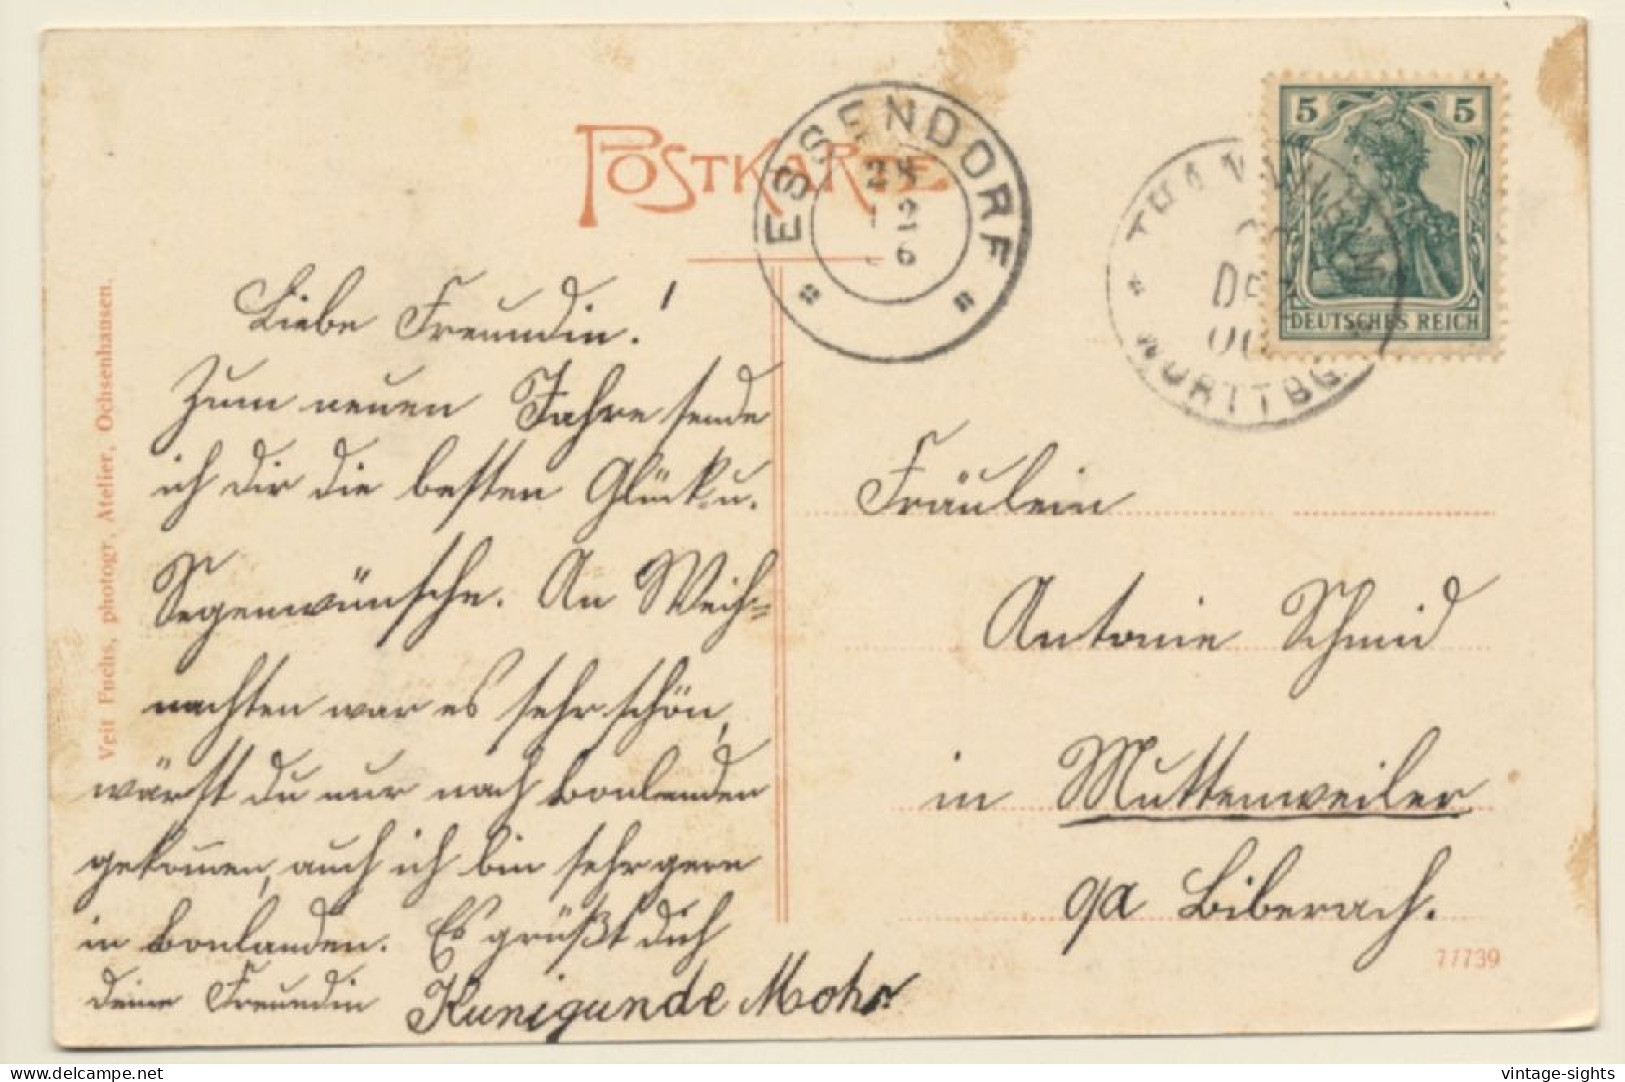 POSTKARTE
ESSENDORF
DEUTSCHES REICH
5 5
WÜRTTBG.
Veit Fuchs, photogr. Atelier, Ochsenhausen.
Liebe Freundin!
Zum neuen Jahre sende
ich dir die besten Glück u.
Segenwünsche. An Weih=
nachten war es sehr schön,
wärst du nur nach Bonlanden
gekommen, auch ich bin sehr gern
in Bonlanden. Es grüßt dich
deine Freundin Kunigunde Mohr
Fräulein
Antonie Schmid
in Muttenweiler
O/A Biberach.
77739
vintage-sights